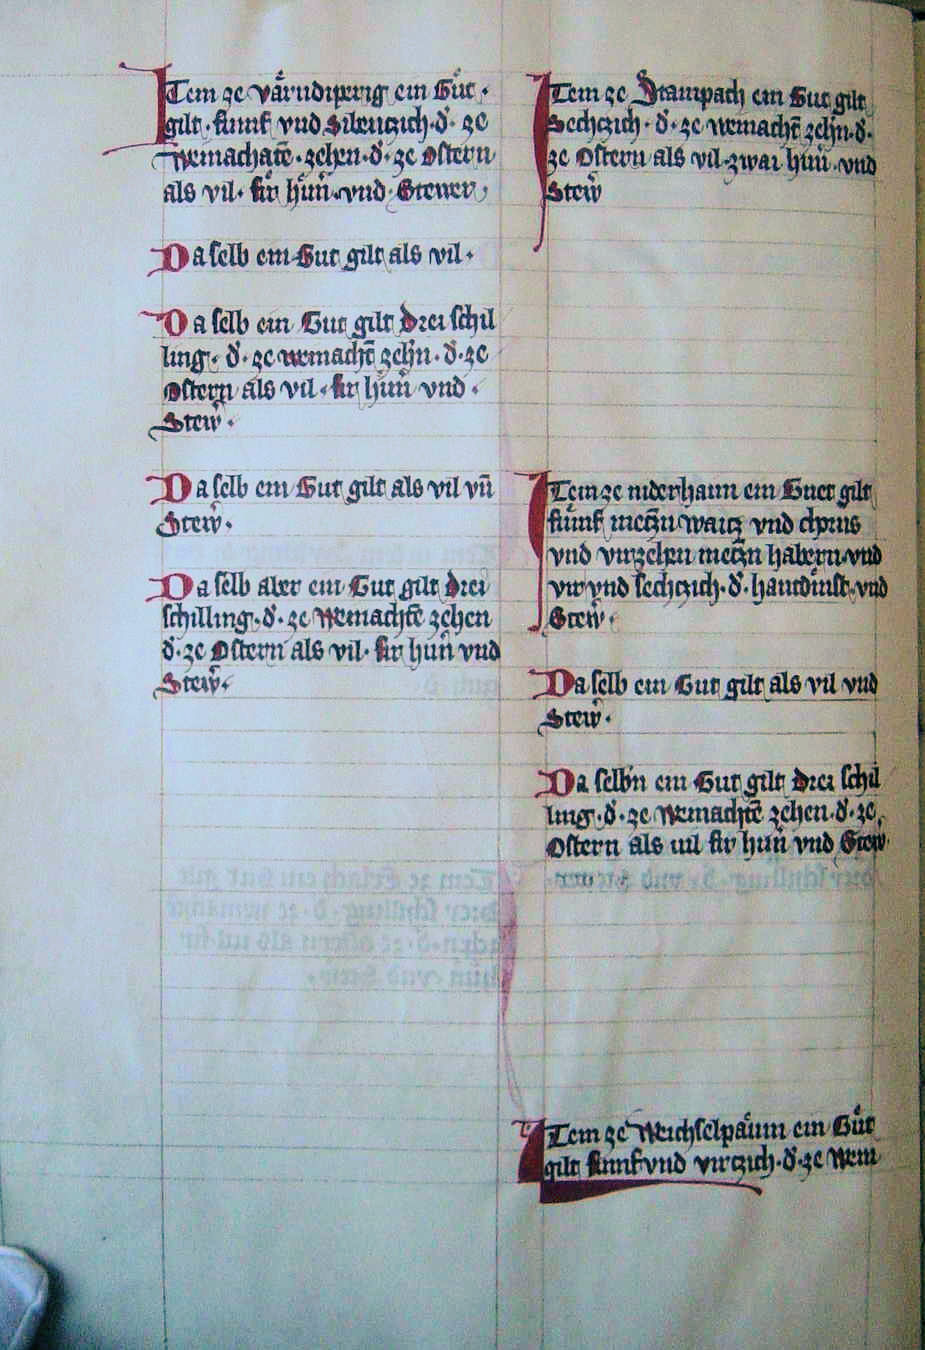 Item ze värndiperig ein Güt ·
gilt · fünf vnd Sibentzich · d · ze
Weinachatē · zehen · d · ze Ostern
als vil · fir hün · vnd · Stewer
Da selb ein Gut gilt als vil ·
Da selb ein Gut gilt drei schil
ling · d · ze weinachtē zehn · d · ze
Ostern als vil · fir hün vnd ·
Stew ·
Da selb ein Gut gilt als vil vn̄
Stew ·
Da selb aber ein Gut gilt drei
schilling · d · ze Weinachtē zehen
d · ze Ostern als vil · fir hün vnd
Stew ·
Item ze Stampach ein Gut gilt
Sechczich · d · ze weinachtē zehn · d ·
ze Ostern als vil · zwai hün · vnd
Stew
Item ze niderhaun ein Guet gilt
fünf meczn waicz vnd
vnd virzehen meczn habern · vnd
vir vnd sechczich · d · vnd
Stew ·
Da selb ein Gut gilt als vil vnd
Stew ·
Da selbn ein Gut gilt drei schil
ling · d · ze Weinachtē zehen · d · ze
Ostern als uil fir hün vnd Stew
Item ze Weichselpäum ein Güt
gilt fünf vnd virtzich · d · ze Wein